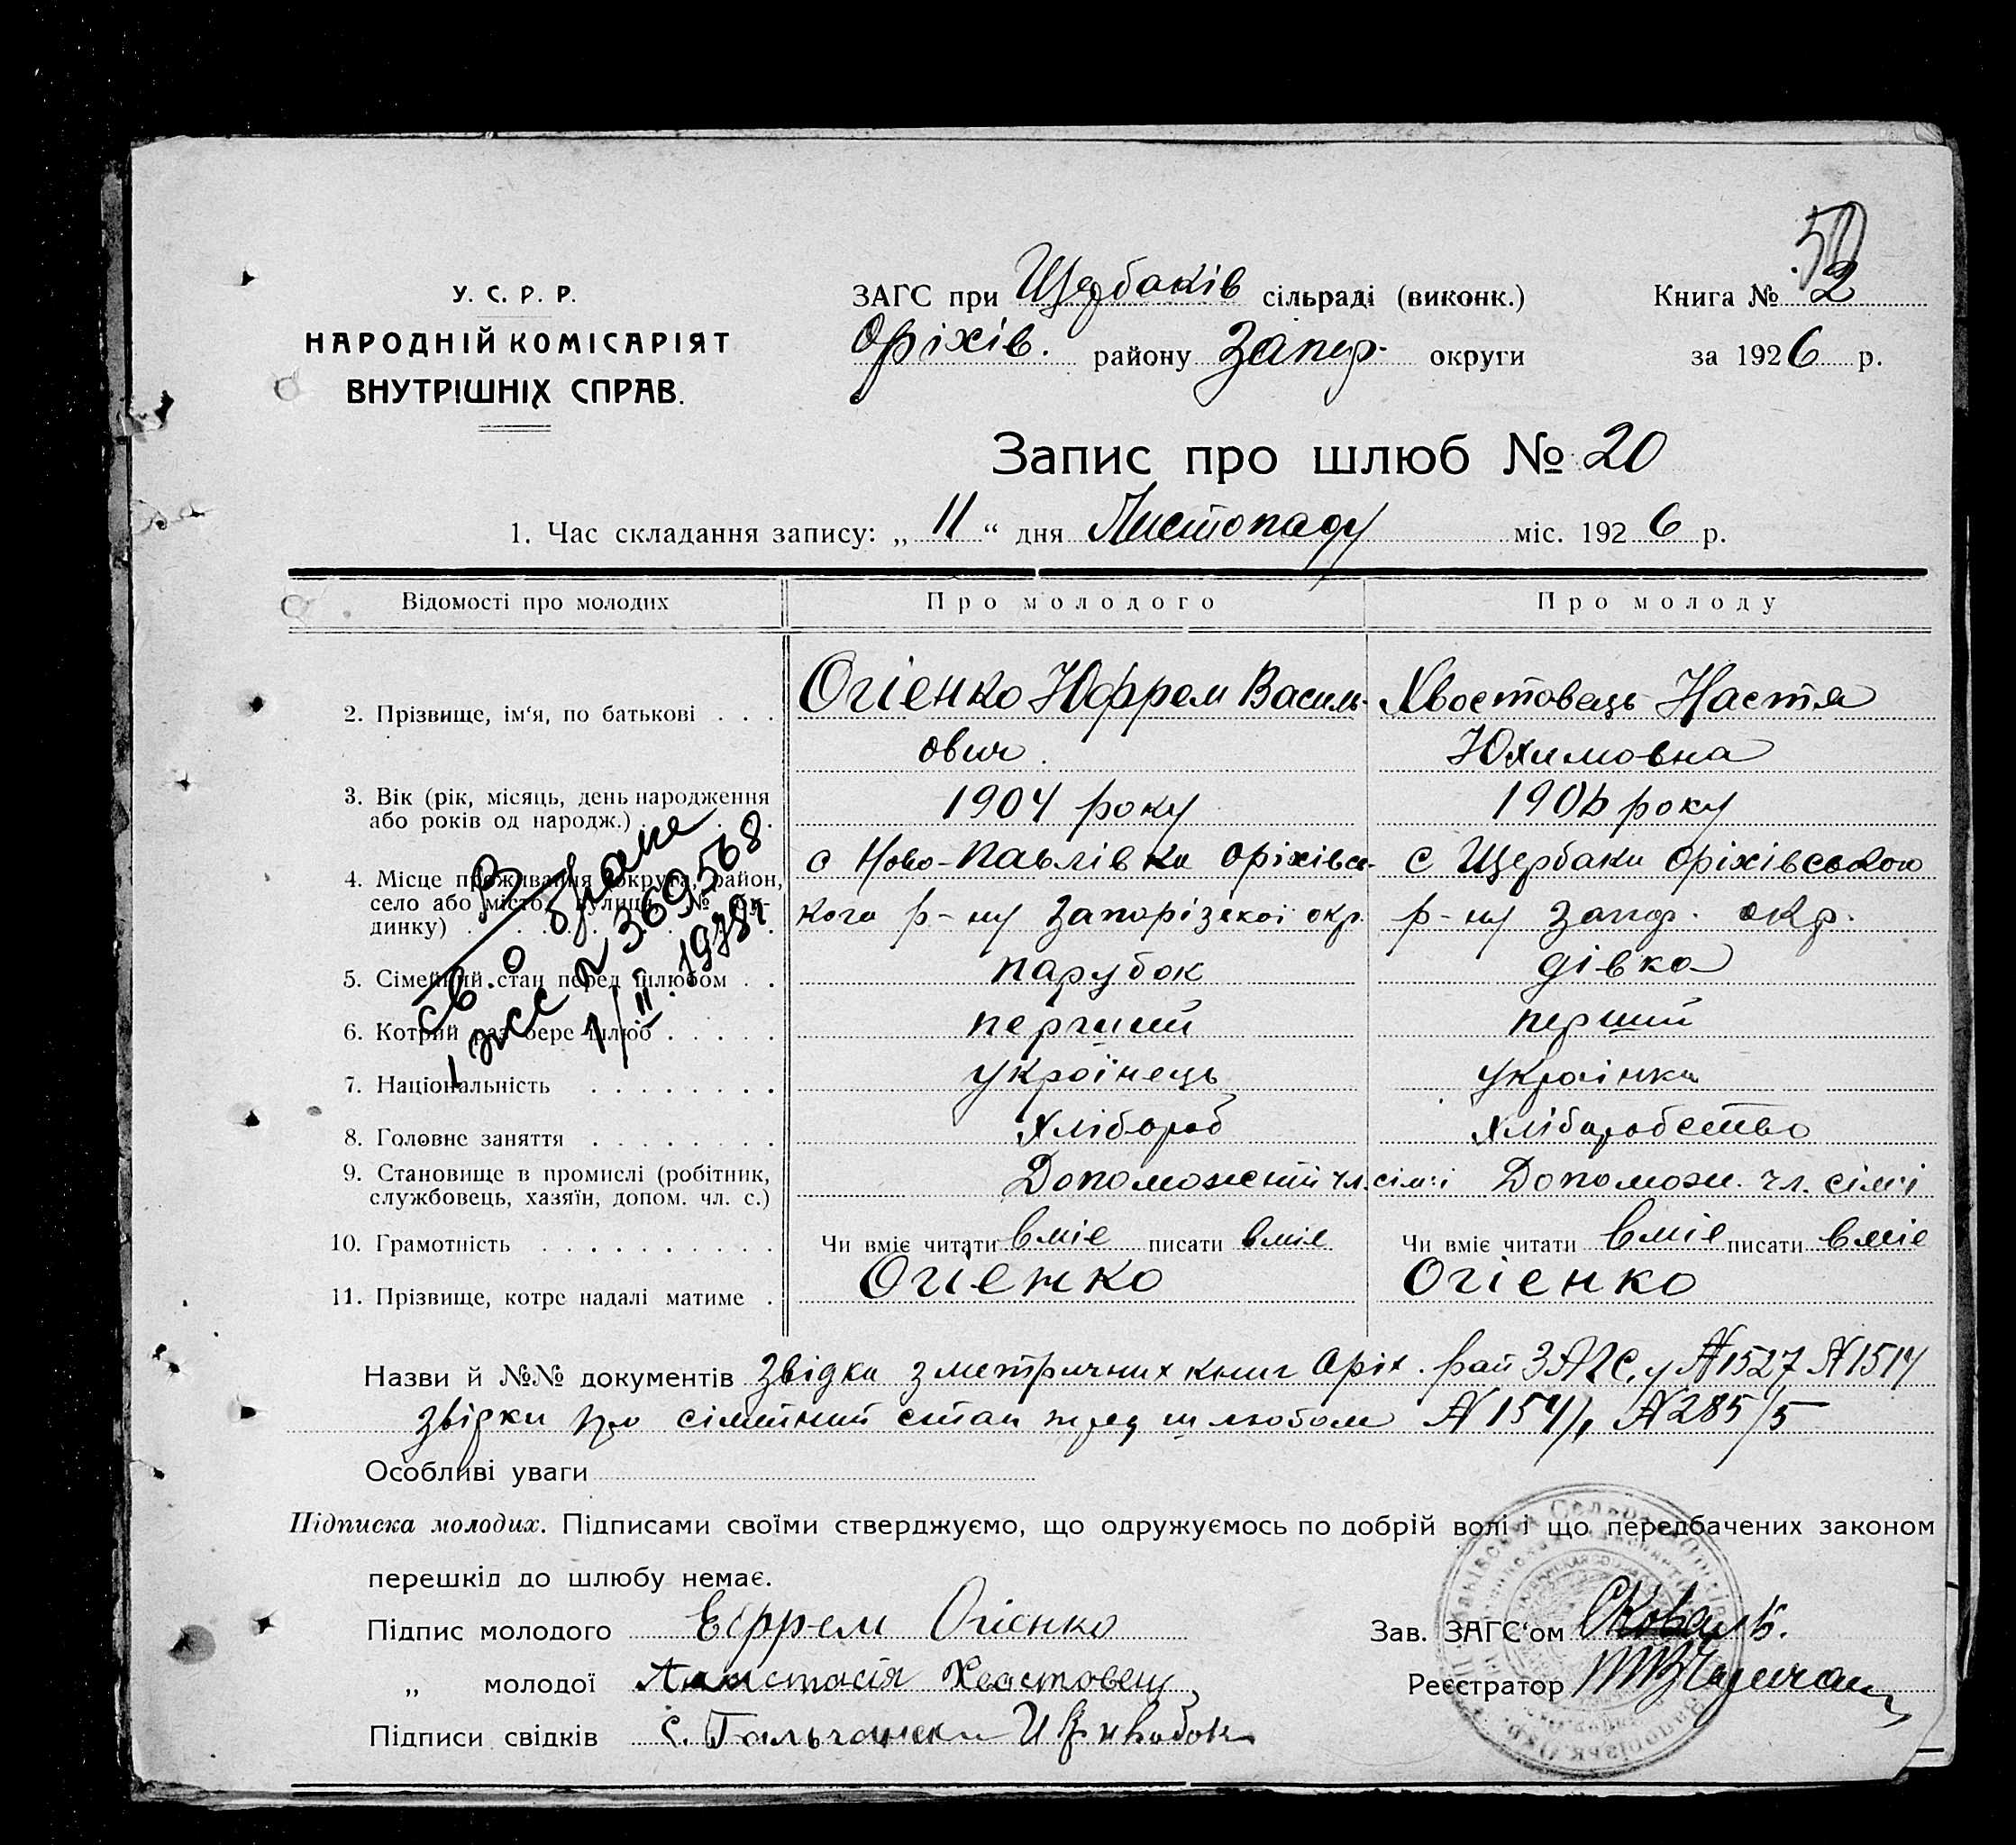 50
У. С. Р. Р.
НАРОДНІЙ КОМІСАРІЯТ
ВНУТРІШНІХ СПРАВ.
ЗАГС при Щербаків сільраді (виконк.) Книга № 2
Оріхів. району Запор. округи за 1926 р.
Запис про шлюб № 20
1. Час складання запису: „ 11 “ дня Листопаду міс. 1926 р.
Відомості про молодих Про молодого Про молоду
2. Прізвище, ім‘я, по батькові . . . Огіенко Юфрем Василь- Хвостовець Настя
ович. Юхимовна
3. Вік (рік, місяць, день народження 1904 року 1906 року
або років од народж.)
4. Місце проживання (округа, район, с Ново-Павлівка Оріхівсь- с Щербаки Оріхівського
село або місто, вулиця, № бу- кого р-ну Запорізскоі окр. р-ну Запор. окр.
динку)
5. Сімейний стан перед шлюбом . . парубок дівка
6. Котрий раз бере шлюб . . . . . перший перший
7. Національність . . . . . . . . українець українка
8. Головне заняття . . . . . . . . Хлібороб хліборобство
9. Становище в промислі (робітник, Допоможний чл. сім'і Допоможн. чл. сім'і
службовець, хазяїн, допом. чл. с.)
10. Грамотність . . . . . . . . . . Чи вміє читати вміє писати вміє Чи вміє читати вміє писати вміє
11. Прізвище, котре надалі матиме . Огіенко Огіенко
св. о браке
369568
Назви й №№ документів Звідки з метричних книг Оріх. рай ЗАГС,у №1527 №1514
звідки про сімейний стан перед шлюбом №154/1 №285/5
Особливі уваги
Підписка молодих. Підписами своїми стверджуємо, що одружуємось по добрій волі і що передбачених законом
перешкід до шлюбу немає.
Підпис молодого Ефрем Огіенко Зав. ЗАГС‘ом Коваль.
„ молодої Анастасія Хвастовец Реєстратор
Підписи свідків